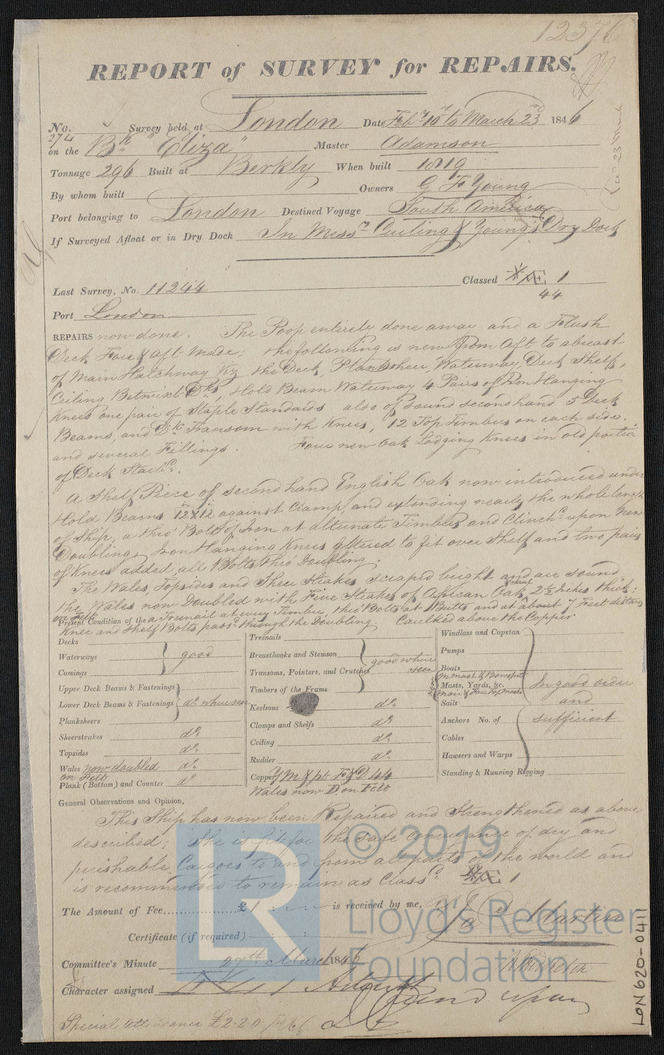 12376
REPORT of SURVEY for REPAIRS.
No. 274 Survey held at London Date Feby 10 to March 23 1846
on the Bk "Eliza" Master Adamson
Tonnage 296 Built at Berkly When built 1819
By whom built Owners G F Young
Port belonging to London Destined Voyage South America
If Surveyed Afloat or in Dry Dock In Messrs Curling & Young's Dry Dock
Last Survey, No. 11244 Classed Æ 1
44
Port London
REPAIRS now done. The Poop entirely done away and a Flush
Deck Fore & aft made; the following is new from aft to abreast
of Main Hatchway Viz the Deck, Plansheer, Waterway, Deck Shelf,
Ceiling Betwixt Dks, Hold Beam Waterway 4 Pairs of Iron Hanging
Knees one pair of Staple Standards also of sound second hand 5 Deck
Beams, and Dk Transom with Knees, 12 Top Timbers on each side.
and several Fillings. Four new Oak Lodging Knees in old portion
of Deck
A Shelf Piece of second hand English Oak now introduced under
Hold Beams 12x12 against Clamp, and extending nearly the whole length
of Ship, a thro' Bolt of Iron at alternate Timbers and Clinchd upon new
Doubling, Iron Hanging Knees altered to fit over Shelf and two pairs
of Knees added, all Bolts thro' Doubling.
The Wales, Topsides and Sheer Strakes scraped bright and are sound
the Wales now Doubled with Five Strakes of African Oak 2½ Inches thick:
on Felt a Treenail at every Timber, thro' Bolts at Butts and at about 7 Feet distance
Present Condition of the
Knee and Shelf Bolts passd through the Doubling Caulked above the Copper
Decks
Waterways good
Comings
Upper Deck Beams & Fastenings
Lower Deck Beams & Fastenings do where seen
Planksheers
Sheerstrakes do
Topsides do
Wales now doubled do
on Felt
Plank (Bottom) and Counter do
Treenails
Breasthooks and Stemson good where seen
Transoms, Pointers, and Crutches
Timbers of the Frame
Keelsons do
Clamps and Shelfs do
Ceiling do
Rudder do
Copper YM & pt F & D 44
Wales now D on Felt
Windlass and Capstan
Pumps
Boats
Masts, Yards, &c. In good order
Sails and
Anchors No. of sufficient
Cables
Hawsers and Warps
Standing & Running Rigging
General Observations and Opinion,
This Ship has now been Repaired and Strengthened as above
described; she is fit for the safe conveyance of dry and
perishable Cargoes to and from all parts of the world and
is recommended to remain as Classd Æ 1
The Amount of Fee £1 is received by me,
Martin
Certificate (if required)
Committee's Minute 27th March 1846
Character assigned
Special attendance £2.2.0
LON620-0411
LR
© 2019
Lloyd's Register
Foundation